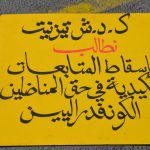 ك.د.ش تيزنيت
تطالب
بإسقاط المتابعات
الكيدية في حق المناضلين
الكونفدراليين